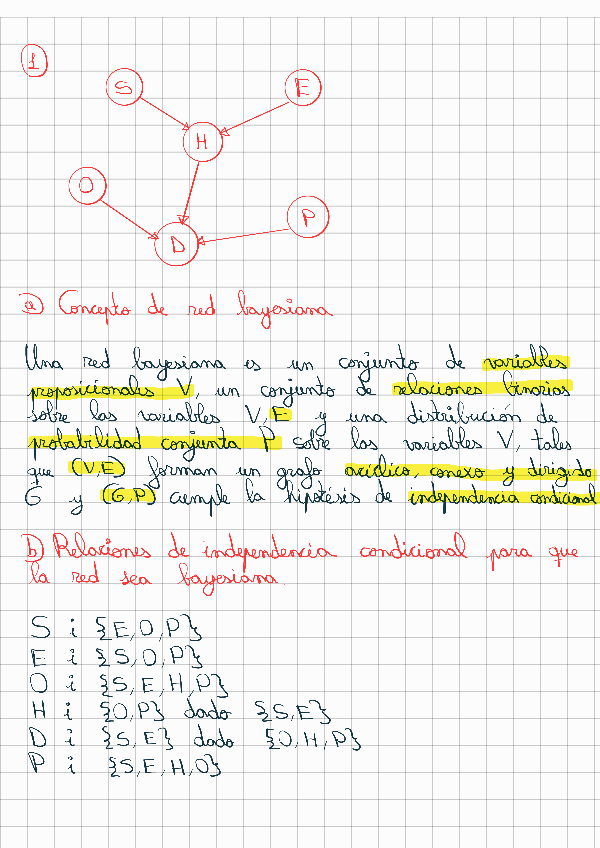 1
S
E
H
O
P
D
a) Concepto de red bayesiana
Una red bayesiana es un conjunto de variables
proposicionales V, un conjunto de relaciones binarias
sobre las variables V, E y una distribución de
probabilidad conjunta P sobre las variables V, tales
que (V,E) forman un grafo acíclico, conexo y dirigido
G y (G,P) cumple la hipótésis de independencia condicional
b) Relaciones de independencia condicional para que
la red sea bayesiana.
S i {E,O,P}
E i {S,O,P}
O i {S,E,H,P}
H i {O,P} dado {S,E}
D i {S,E} dado {O,H,P}
P i {S,E,H,O}